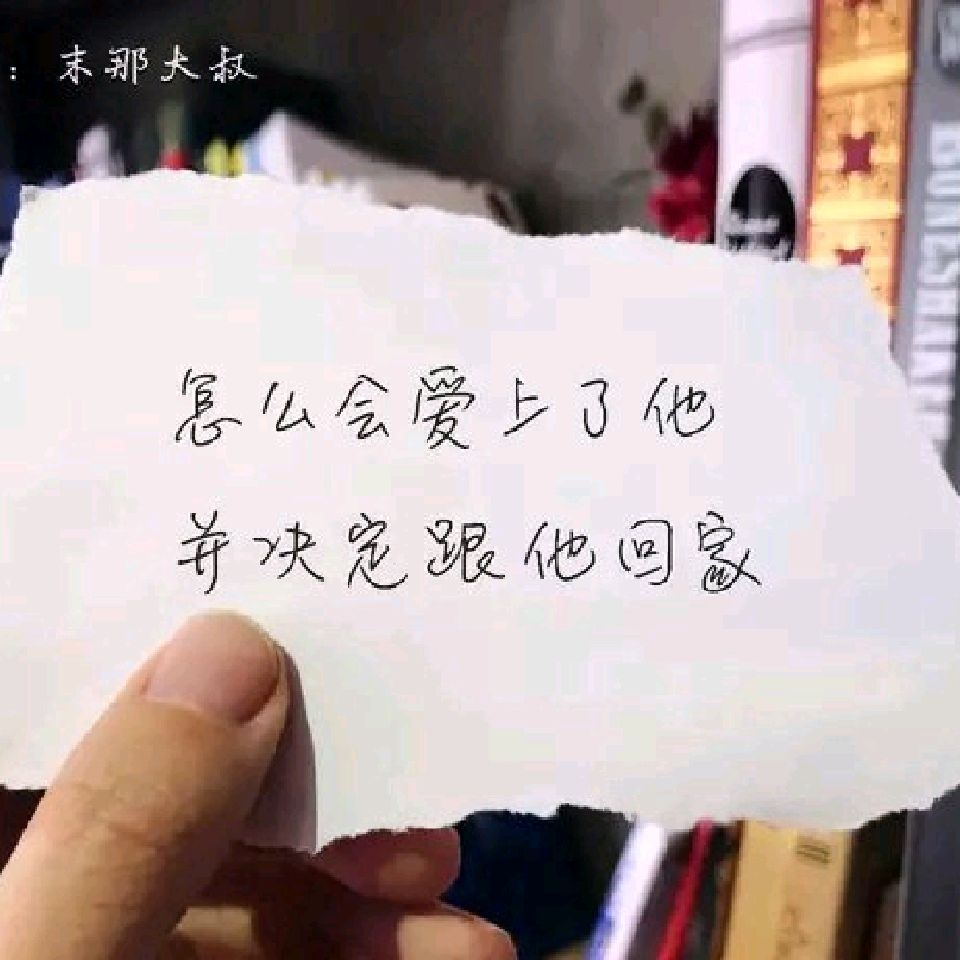 ：末那大叔
怎么会爱上了他
并决定跟他回家